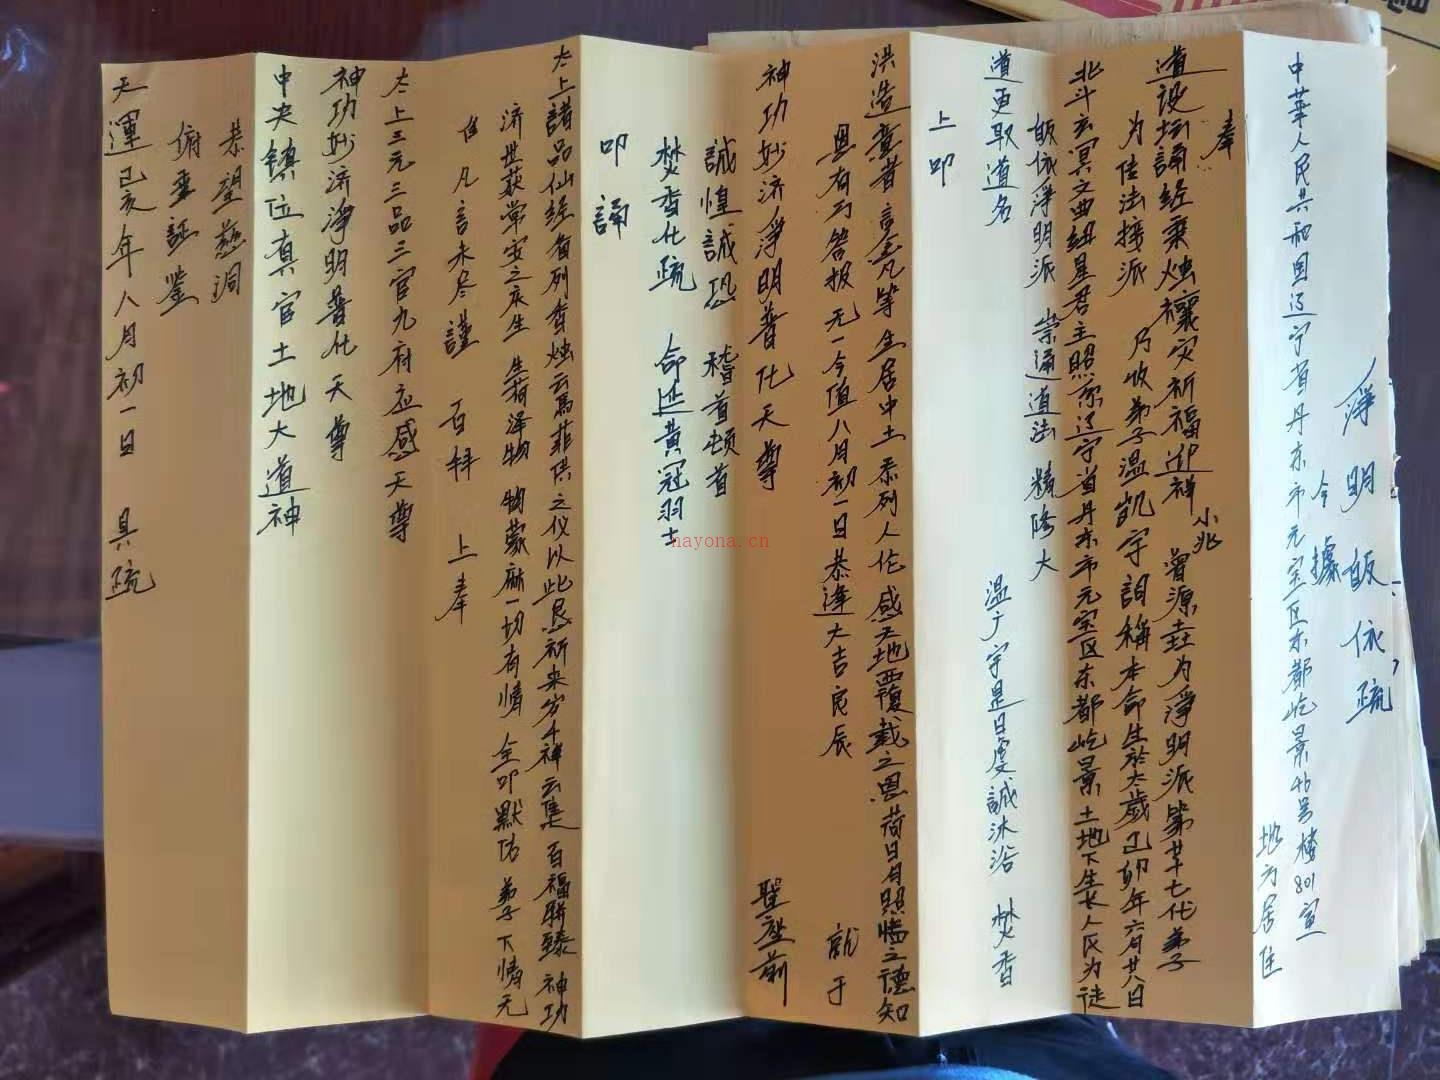 淨明皈依疏
今據
中華人民共和国辽宁省丹东市元宝区东都屹景46号楼801室
地方居住
奉
道設坛誦經秉烛禳灾祈福迎祥
小兆
曾源垚为淨明派第廿七代弟子
为传法接派 乃收弟子温凯宇詞稱本命生於太歲己卯年六月廿八日
北斗玄冥文曲紐星君主照原辽宁省丹东市元宝区东都屹景土地下生长人民为徒
皈依淨明派 崇通道法 精修大
道更取道名
温广宇是日虔誠沐浴 焚香
上叩
洪造意者言念凡等生居中土忝列人伦感天地覆載之恩荷日月照臨之德知
恩有万答报无一今值八月初一日恭逢大吉良辰
就于
神功妙济淨明普化天尊
聖座前
誠惶誠恐 稽首頓首
焚香化疏 命延黃冠羽士
叩誦
太上諸品仙經者列香烛云馬菲供之仪以此恳祈来岁千祥云集 百福駢臻 神功
济世获常安之 生 生荷泽物 物蒙庥一切有情 全叩默佑 弟子下情无
任凡言未尽謹
百拜
上奉
太上三元三品三官九府应感天尊
神功妙济淨明普化天尊
中央镇位真官土地大道神
恭望慈洞
俯垂証鉴
天運己亥年八月初一日 具疏
hayona.cn